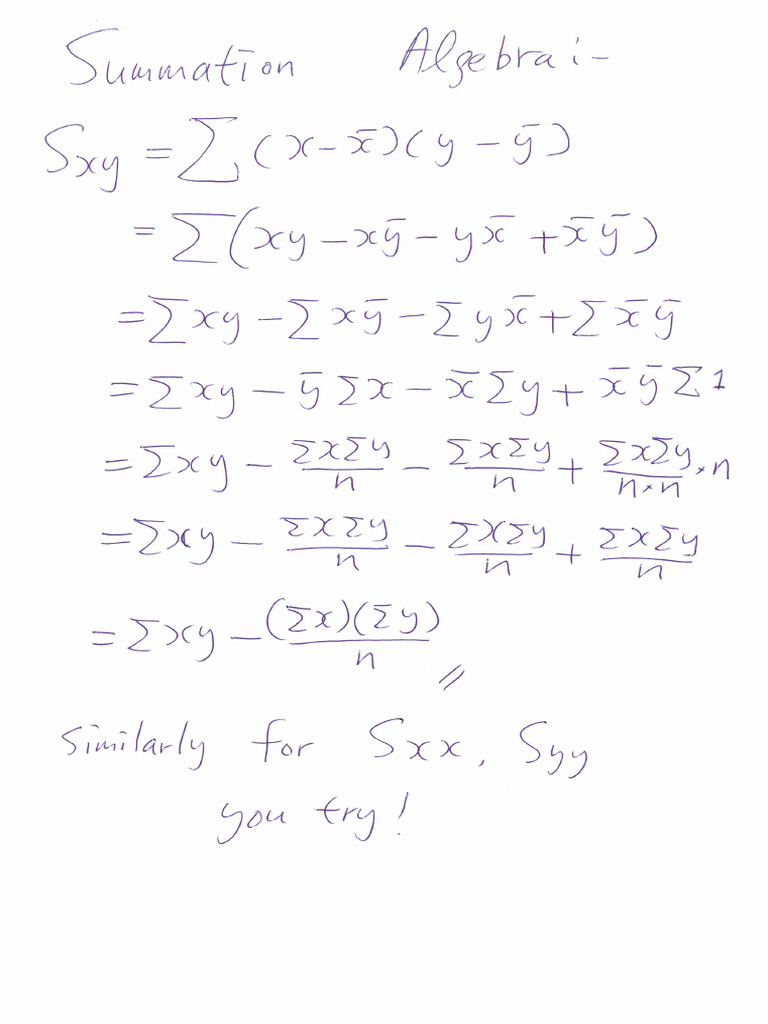 Summation Algebra:-
Sxy = ∑(x-x̄)(y-ȳ)
= ∑(xy-xȳ-yx̄+x̄ȳ)
= ∑xy - ∑xȳ - ∑yx̄ + ∑x̄ȳ
= ∑xy - ȳ∑x - x̄∑y + x̄ȳ∑1
= ∑xy - ∑x∑y/n - ∑x∑y/n + ∑x∑y/n×n × n
= ∑xy - ∑x∑y/n - ∑x∑y/n + ∑x∑y/n
= ∑xy - (∑x)(∑y)/n //
Similarly for Sxx, Syy
you try!